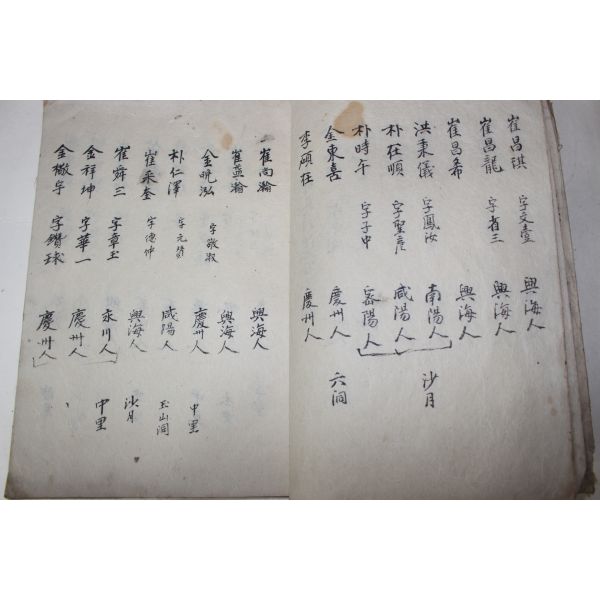 崔昌琪 字文壹 興海人
崔昌龍 字者三 興海人
崔昌希 興海人
洪秉儀 字鳳汝 南陽人 沙月
朴在順 字聖彦 咸陽人
朴時午 字子中 密陽人
金東喜 慶州人 六洞
李碩在 慶州人
崔尚瀚 興海人
崔益瀚 興海人
金晩泓 字敬叔 慶州人 中里
朴仁澤 字元贊 咸陽人 玉山洞
崔乘奎 字德仲 興海人 沙月
崔舜三 字章玉 永川人 中里
金祥坤 字華一 慶州人
金 字 字鑽球 慶州人